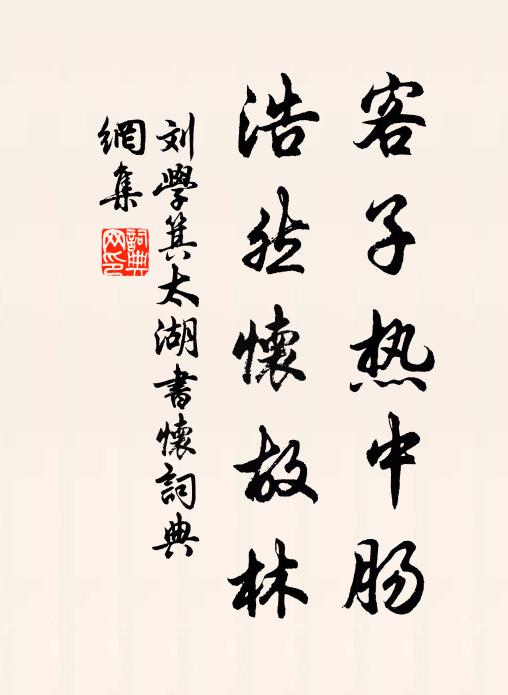 客子热中肠
浩然懷故林
刘學箕太湖書懷詞典
網集
詞典
网印